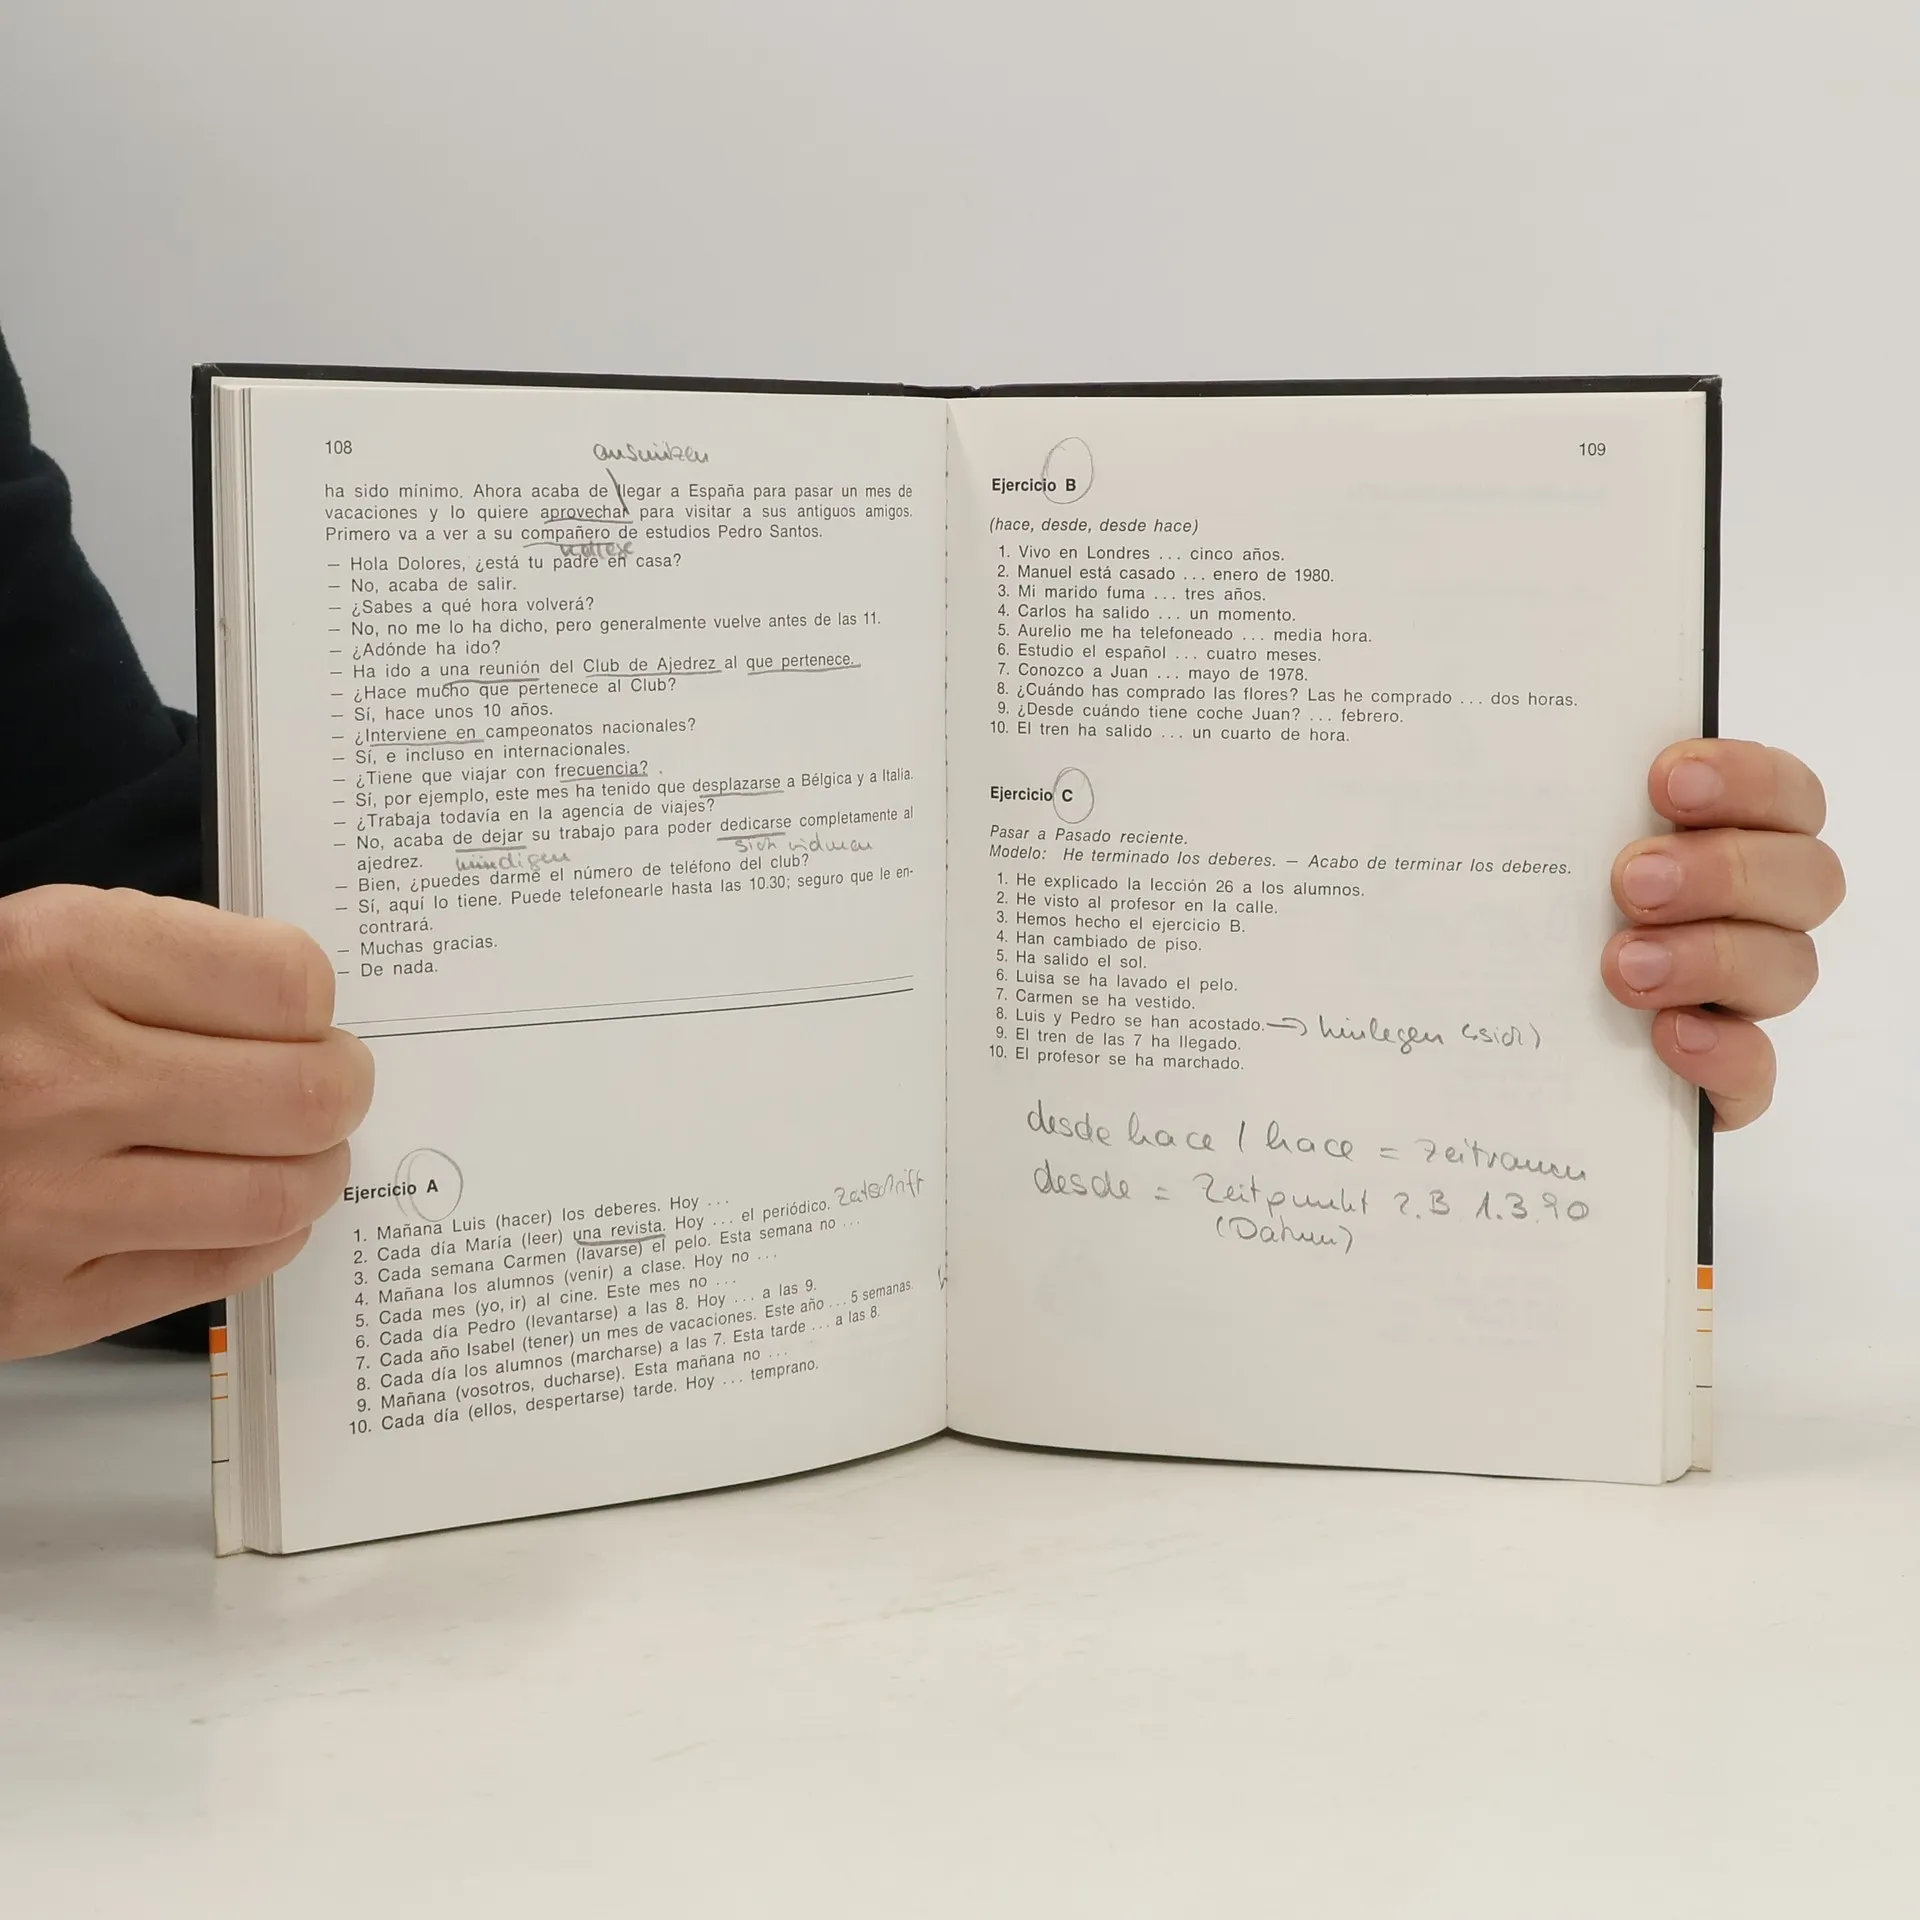 108
ausnützen
ha sido mínimo. Ahora acaba de llegar a España para pasar un mes de
vacaciones y lo quiere aprovechar para visitar a sus antiguos amigos.
Primero va a ver a su compañero de estudios Pedro Santos.
— Hola Dolores, ¿está tu padre en casa?
— No, acaba de salir.
— ¿Sabes a qué hora volverá?
— No, no me lo ha dicho, pero generalmente vuelve antes de las 11.
— ¿Adónde ha ido?
— Ha ido a una reunión del Club de Ajedrez al que pertenece.
— ¿Hace mucho que pertenece al Club?
— Sí, hace unos 10 años.
— ¿Interviene en campeonatos nacionales?
— Sí, e incluso en internacionales.
— ¿Tiene que viajar con frecuencia?
— Sí, por ejemplo, este mes ha tenido que desplazarse a Bélgica y a Italia.
— ¿Trabaja todavía en la agencia de viajes?
— No, acaba de dejar su trabajo para poder dedicarse completamente al
ajedrez. kündigen sich widmen
— Bien, ¿puedes darme el número de teléfono del club?
— Sí, aquí lo tiene. Puede telefonearle hasta las 10.30; seguro que le en-
contrará.
— Muchas gracias.
— De nada.
Ejercicio A
1. Mañana Luis (hacer) los deberes. Hoy ...
2. Cada día María (leer) una revista. Hoy ... el periódico. Zeitschrift
3. Cada semana Carmen (lavarse) el pelo. Esta semana no ...
4. Mañana los alumnos (venir) a clase. Hoy no ...
5. Cada mes (yo, ir) al cine. Este mes no ...
6. Cada día Pedro (levantarse) a las 8. Hoy ... a las 9.
7. Cada año Isabel (tener) un mes de vacaciones. Este año ... 5 semanas.
8. Cada día los alumnos (marcharse) a las 7. Esta tarde ... a las 8.
9. Mañana (vosotros, ducharse). Esta mañana no ...
10. Cada día (ellos, despertarse) tarde. Hoy ... temprano.
109
Ejercicio B
(hace, desde, desde hace)
1. Vivo en Londres ... cinco años.
2. Manuel está casado ... enero de 1980.
3. Mi marido fuma ... tres años.
4. Carlos ha salido ... un momento.
5. Aurelio me ha telefoneado ... media hora.
6. Estudio el español ... cuatro meses.
7. Conozco a Juan ... mayo de 1978.
8. ¿Cuándo has comprado las flores? Las he comprado ... dos horas.
9. ¿Desde cuándo tiene coche Juan? ... febrero.
10. El tren ha salido ... un cuarto de hora.
Ejercicio C
Pasar a Pasado reciente.
Modelo: He terminado los deberes. — Acabo de terminar los deberes.
1. He explicado la lección 26 a los alumnos.
2. He visto al profesor en la calle.
3. Hemos hecho el ejercicio B.
4. Han cambiado de piso.
5. Ha salido el sol.
6. Luisa se ha lavado el pelo.
7. Carmen se ha vestido.
8. Luis y Pedro se han acostado. → hinlegen (sich)
9. El tren de las 7 ha llegado.
10. El profesor se ha marchado.
desde hace / hace = Zeitraum
desde = Zeitpunkt z.B 1.3.90
(Datum)